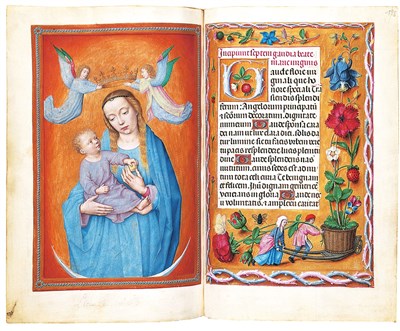 Incipiunt septem gaudia beate
marie virginis
Gaude flore vir
ginali que ho
nore speciali Tra
scendis splendi
ferum: Angelorum principatū
et sanctorum decoratū, dignitate
numerum. Gaude sponsa cara
dei nam ut clara lux diei Solis da
tur lumine, Sic tu facis orbem uere
tue pacis resplendere lucis plenitu
dine Gaude splendens uas
uirtutum, cuius sedes est ad nu
tum tota celi curia Te benignam
et felicem, Jhū dignam genitricē
uenerans in gloria Gaude ne
xu voluntatis, et amplexu caritat